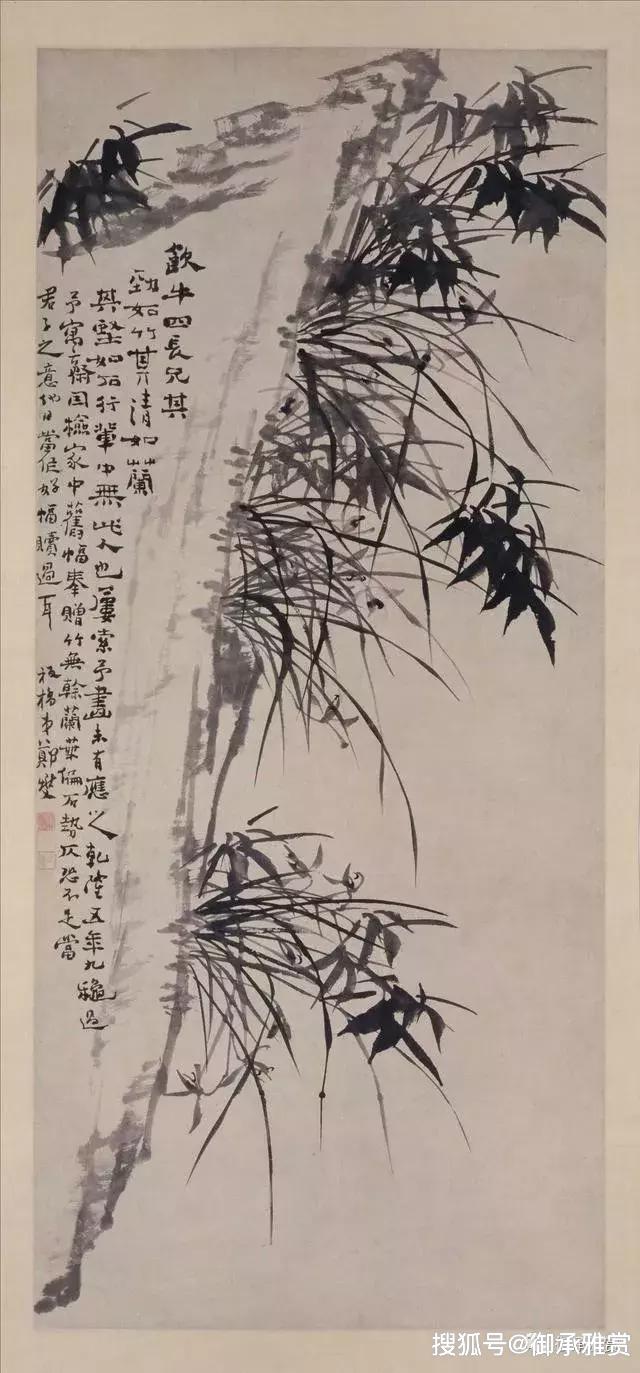 飲牛四長兄其
勁如竹其清如蘭
其堅如石行輩中無此人也屢索予畫未有應之乾隆五年九龝過
予寓齋因檢家中舊幅奉贈竹無榦蘭葉偏石勢仄恐不足當
君子之意他日當作好幅贖過耳 板橋弟鄭燮
搜狐号@御承雅赏